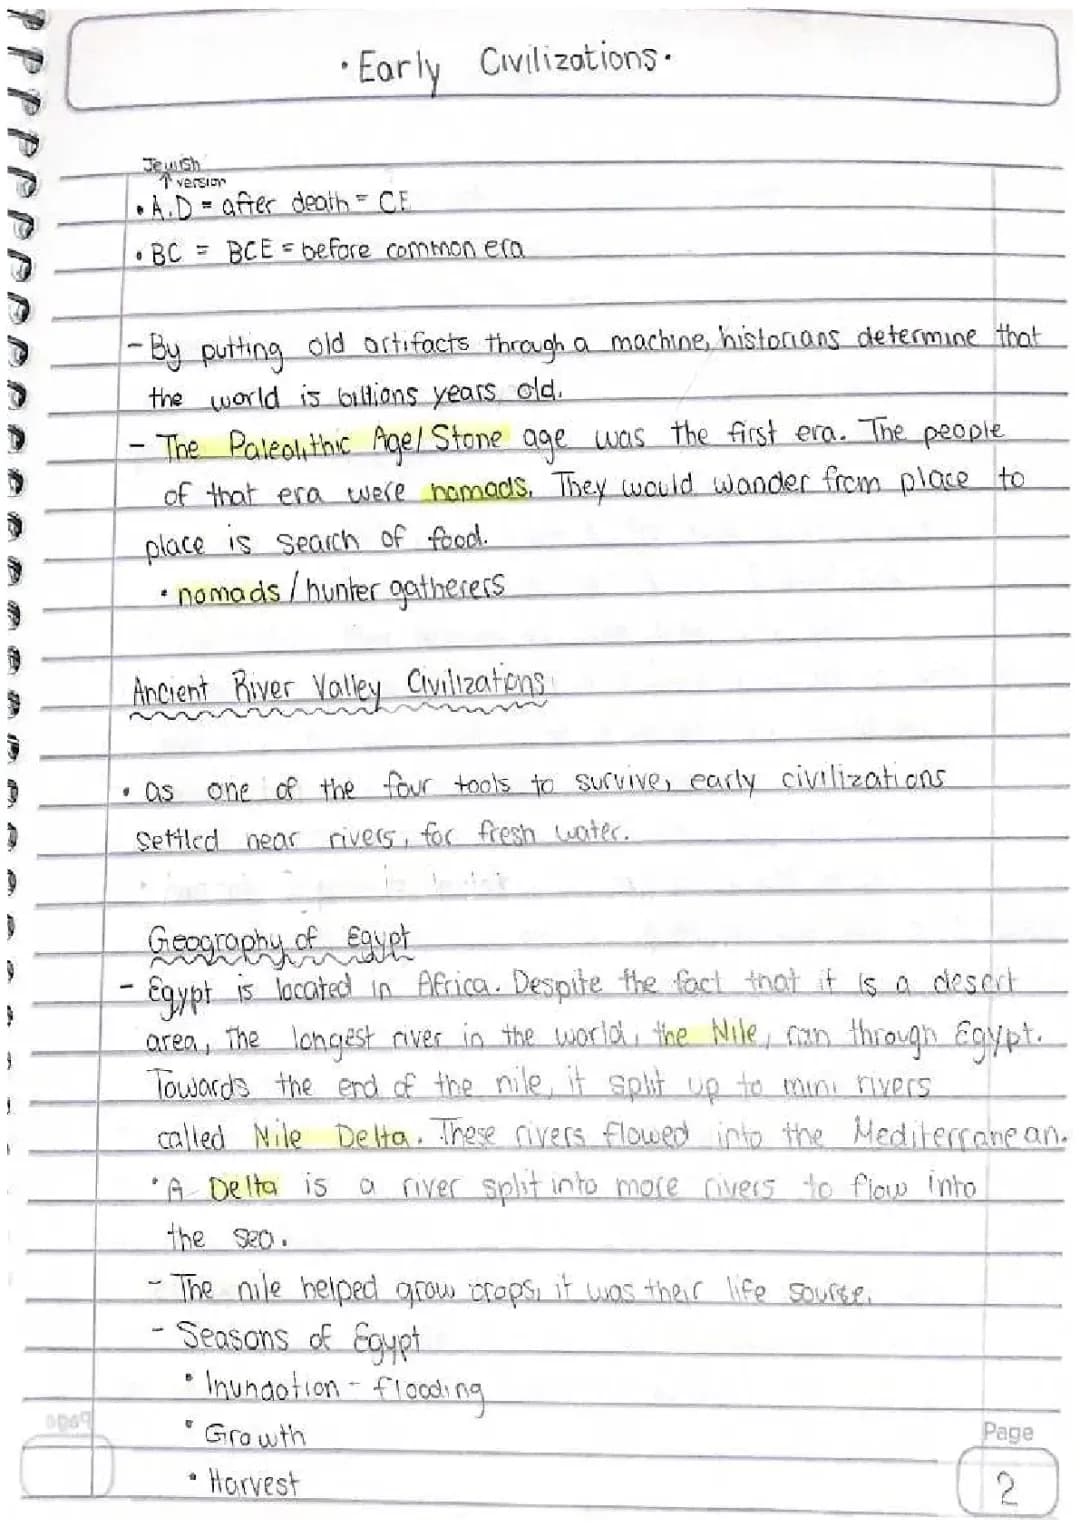 · Early Civilizations ·
Jewish
↑ version
• A.D = after death = CE
• BC = BCE = before common era
- By putting old artifacts through a machine, historians determine that
the world is billions years old.
- The Paleolithic Age/ Stone age was the first era. The people
of that era were nomads. They would wander from place to
place is search of food.
• nomads / hunter gatherers
Ancient River Valley Civilizations
• as one of the four tools to survive, early civilizations
settled near rivers, for fresh water.
Geography of Egypt
- Egypt is located in Africa. Despite the fact that it is a desert
area, The longest river in the world, the Nile, ran through Egypt.
Towards the end of the nile, it split up to mini rivers
called Nile Delta. These rivers flowed into the Mediterranean.
• A Delta is a river split into more rivers to flow into
the sea.
- The nile helped grow crops, it was their life source.
- Seasons of Egypt
• Inundation - flooding
• Growth
• Harvest
Page
2